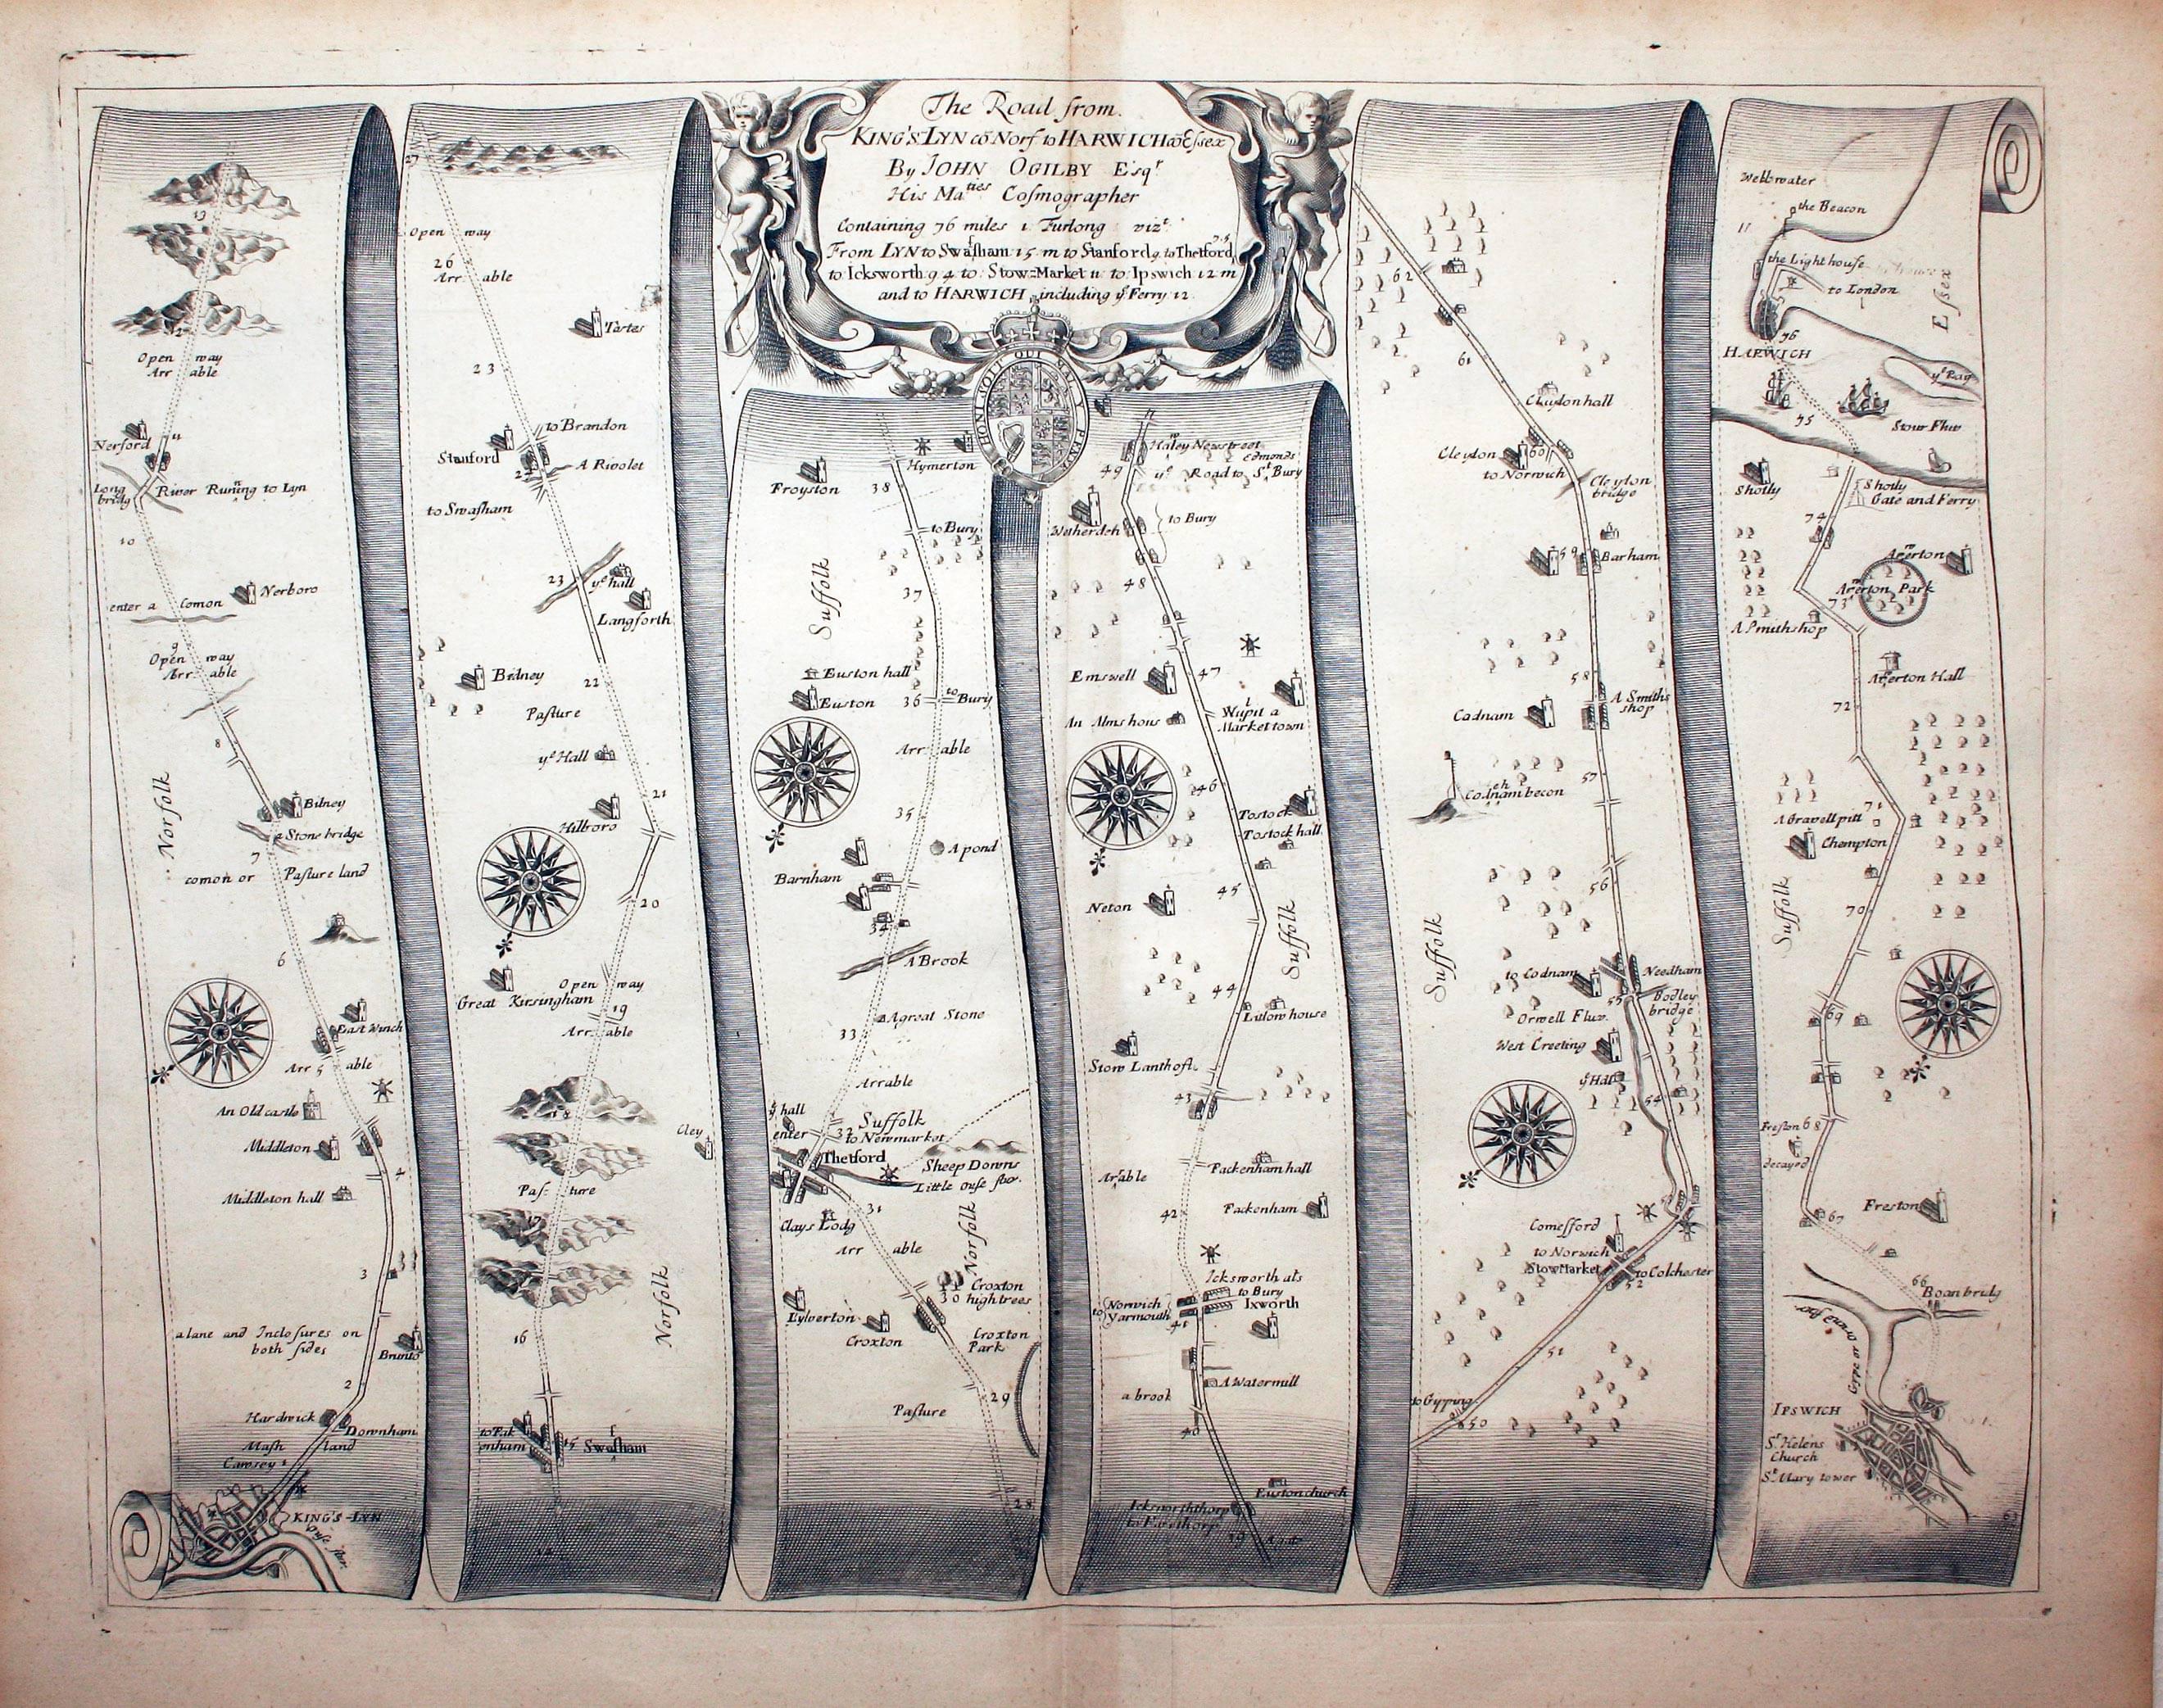 The Road from
KING'S LYN cõ Norf to HARWICH cõ Essex
By JOHN OGILBY Esqr
His Maties Cosmographer
Containing 76 miles 1 Furlong vizt.
From LYN to Swafham 15 m to Stanford 9 to Thetford 7 5
to Icksworth 9 4 to Stow-Market 11 to Ipswich 12 m
and to HARWICH including ye Ferry 12
HONI SOIT QUI MAL Y PENSE
13
12
Open way
Arr able
Nerford
11
Long
bridg
River Runing to Lyn
10
Nerboro
enter a Comon
9
Open way
Arr able
8
Norfolk
Bilney
a Stone bridge
7
comon or Pasture land
6
East Winch
Arr 5 able
An Old castle
Middleton
4
Middleton hall
3
a lane and Inclosures on
both sides
2
Hardwick
Downham
Mash land
Cawsey 1
KING'S-LYN
Ouse flu.
27
Open way
26
Arr able
Tastes
23
to Brandon
Stanford
A Rivolet
to Swafham
23
ye hall
Langforth
Bidney
22
Pasture
ye Hall
21
Hilboro
20
Great Kirsingham
Open way
19
Arr able
18
Cley
Pas- ture
Norfolk
16
to Pak
enham
15
Swafham
Hymerton
Froyston
38
to Bury
Suffolk
37
Euston hall
Euston
36
to Bury
Arr able
35
A pond
Barnham
34
A Brook
a Agreat Stone
33
Arrable
ye hall
enter
32
Suffolk
to Newmarket
Thetford
Sheep Downs
Little ouse flu.
31
Clays Lodg
Norfolk
Arr able
Croxton
30 high trees
Lylverton
Croxton
Croxton
Park
29
Pasture
28
Haley Newstreet
49
ye Road to St Edmonds Bury
Wetherden
to Bury
48
Emswell
47
An Alms hous
Wulpit a
Market town
46
Tostock
Tostock hall
45
Neton
Suffolk
44
Lutow house
Stow Lanthoft
43
Packenham hall
Arable
42
Packenham
Icksworth als
to Bury
Ixworth
to Norwich
Yarmouth
41
A Watermill
a brook
40
Euston church
Icksworththorp
62
61
Claydon hall
Cleydon
60
to Norwich
Cleyton
bridge
59
Barham
58
A Smiths
shop
Codnam
57
Codnam becon
56
Suffolk
to Codnam
Needham
55
Bodley
bridge
Orwell Fluv.
West Creeting
ye Hall
54
Comesford
to Norwich
StowMarket
to Colchester
52
51
to Gypping
50
the Beacon
the Lighthouse
to London
Essex
76
HARWICH
75
Stour Fluv
Shotly
Shotly
Gate and Ferry
74
Arerton
Arerton Park
73
A Smith shop
Arerton Hall
72
71
A Gravell pitt
Chempton
Suffolk
70
69
Freston 68
decayed
Freston
67
66
Boanbridg
Gype or Orwel flu.
IPSWICH
St Helens
Church
St Mary tower